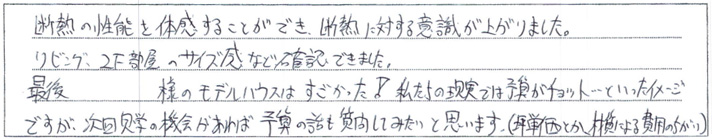 断熱の性能を体感することができ、断熱に対する意識が上がりました。
リビング、2F部屋のサイズ感など確認できました。
最後 様のモデルハウスはすごかった!! 私たちの現実では予算がチョット…といったイメージ
ですが、次回見学の機会があれば予算の話も質問してみたいと思います。(坪単価とか、材質による費用のちがい)